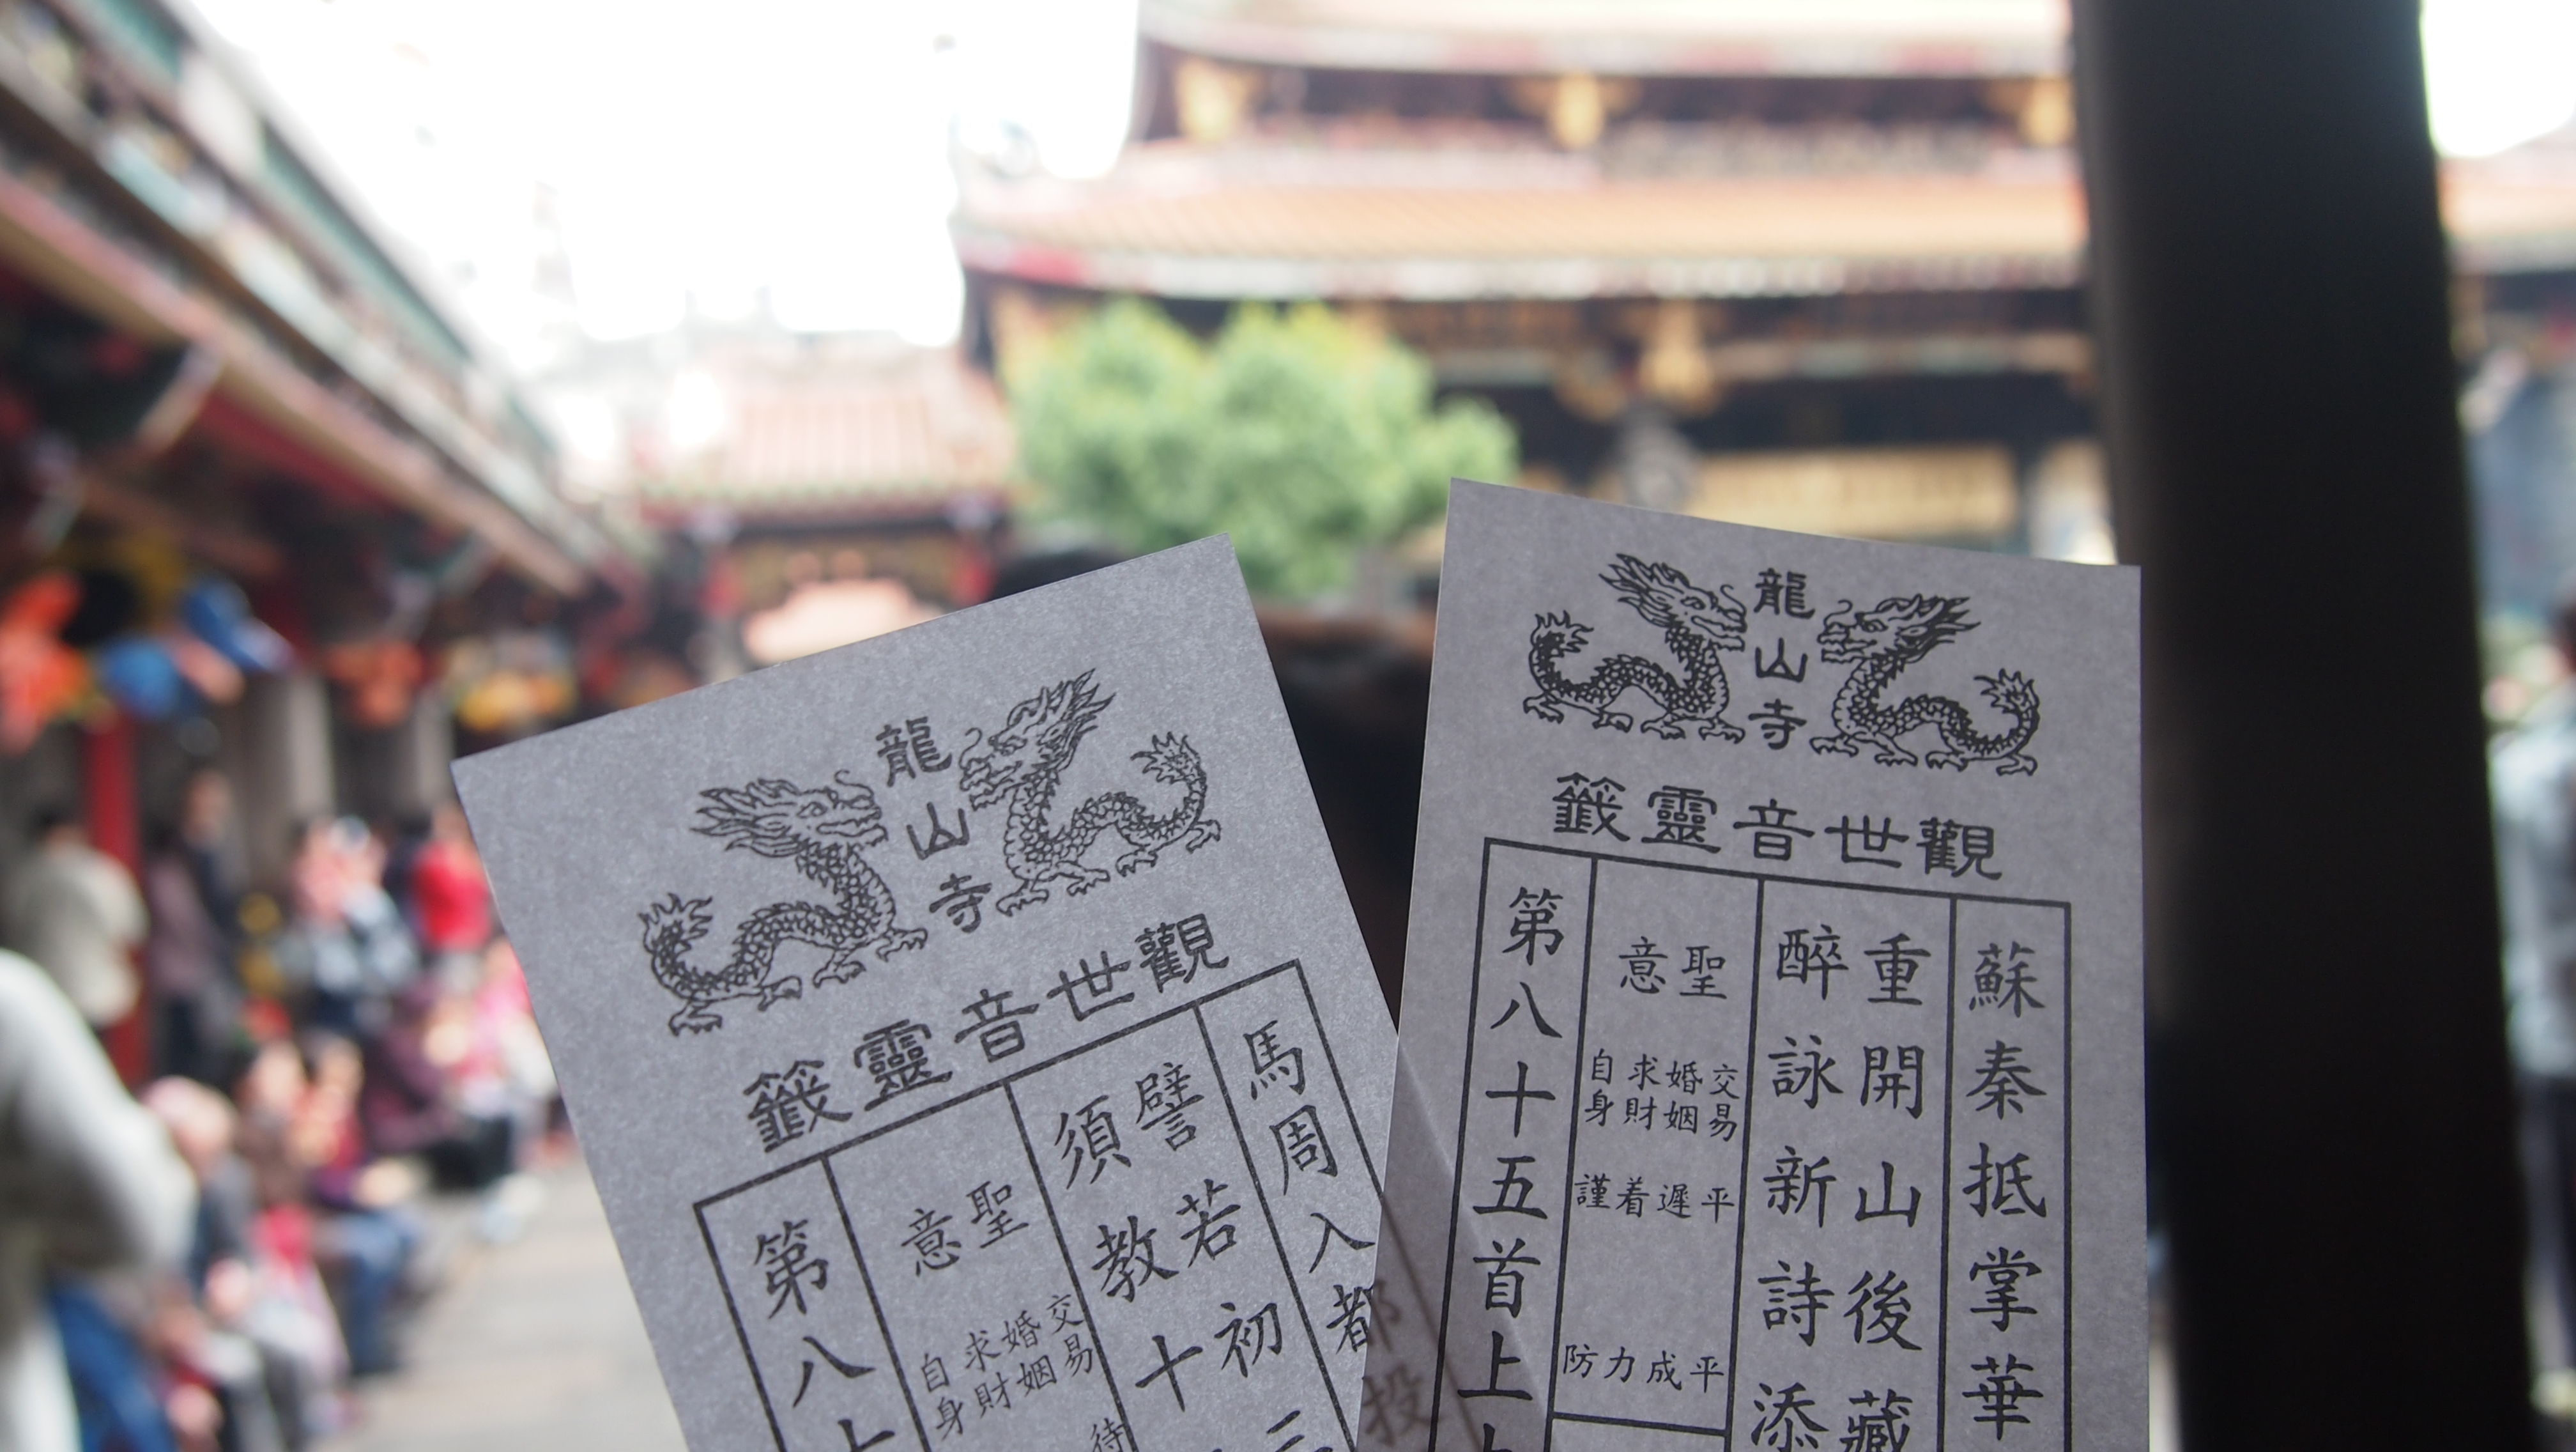 龍山寺
觀世音靈籤
馬周入都投
譬若初三
須教十
聖意
交易
婚姻
求財
自身
待
第八十
龍山寺
觀世音靈籤
蘇秦抵掌華
重開山後藏
醉詠新詩添
聖意
交易 平平
婚姻 遲成
求財 着力
自身 謹防
第八十五首上上